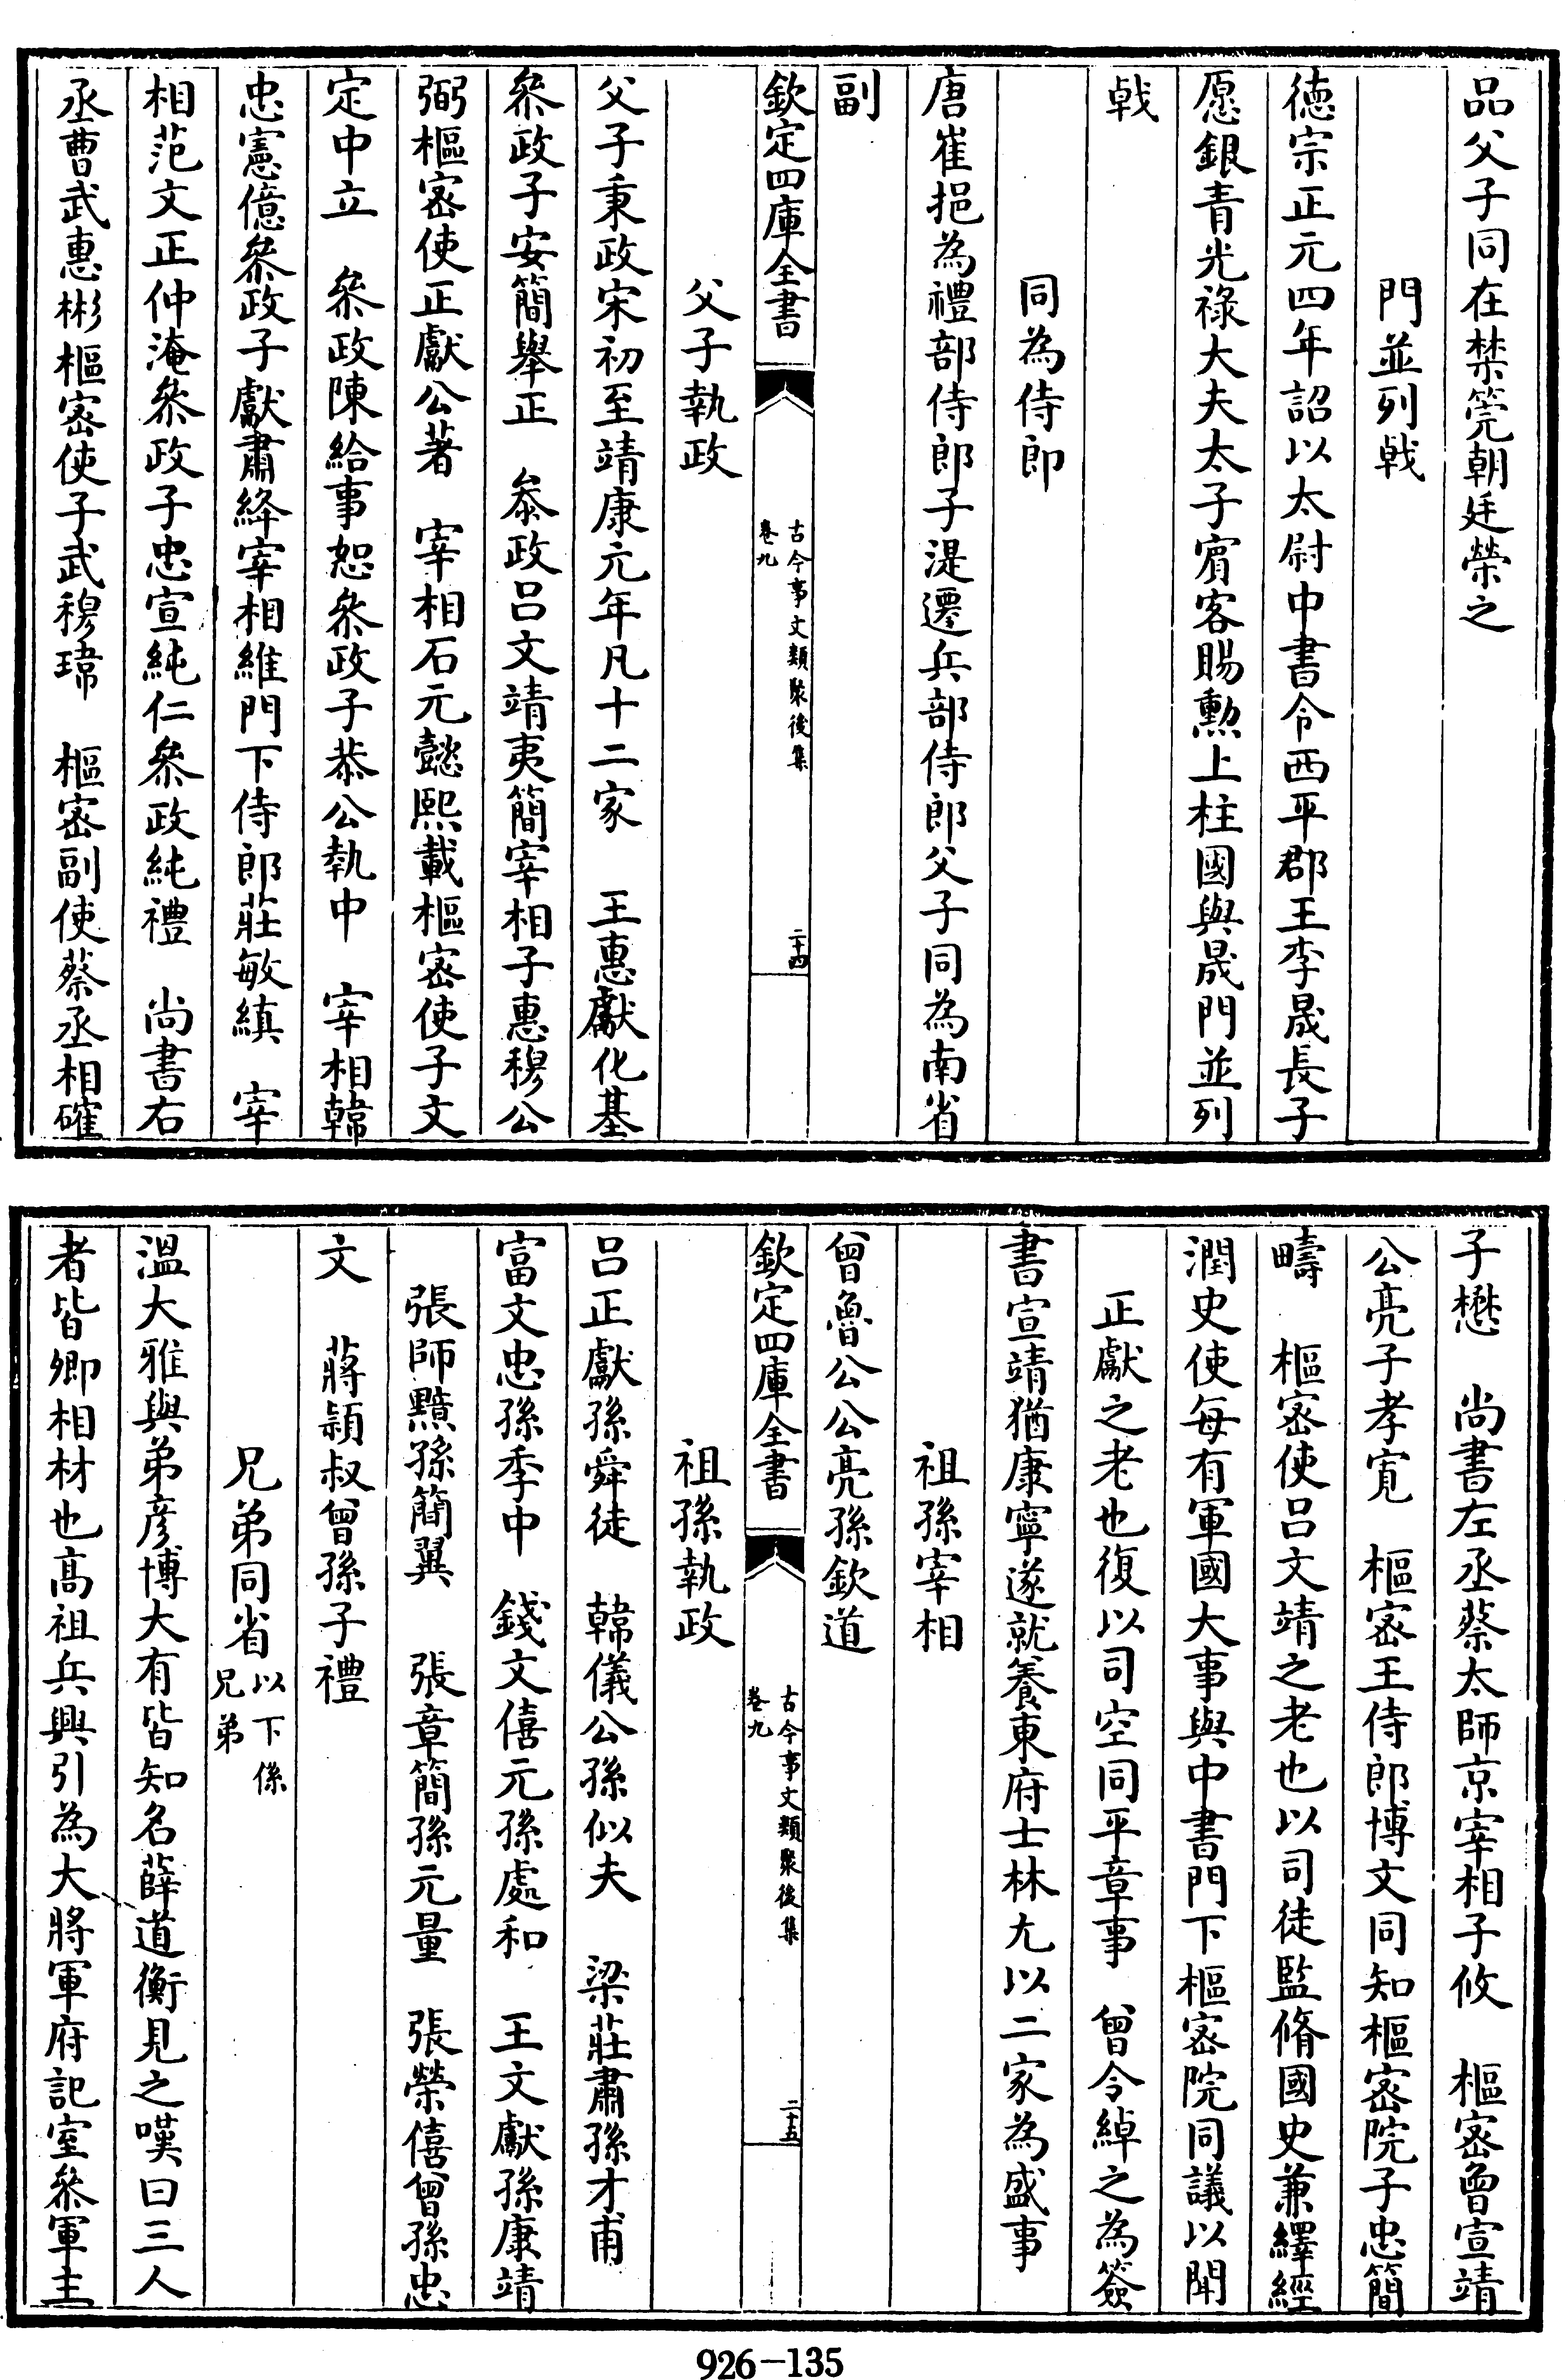 品父子同在禁筦朝廷榮之
門並列㦸
徳宗正元四年詔以太尉中書令西平郡王李晟長子
愿銀青光祿大夫太子賓客賜勲上柱國與晟門並列
㦸
同為侍郎
唐崔挹為禮部侍郎子湜遷兵部侍郎父子同為南省
副
欽定四庫全書
古今事文類聚後集
卷九
二十四
父子執政
父子秉政宋初至靖康元年凡十二家 王惠獻化基
叅政子安簡舉正 叅政吕文靖夷簡宰相子惠穆公
弼樞密使正獻公著 宰相石元懿熙載樞密使子文
定中立 叅政陳給事恕叅政子恭公執中 宰相韓
忠憲億叅政子獻肅絳宰相維門下侍郎莊敏縝 宰
相范文正仲淹叅政子忠宣純仁叅政純禮 尚書右
丞曹武惠彬樞密使子武穆瑋 樞密副使蔡丞相確
子懋 尚書左丞蔡太師京宰相子攸 樞密曾宣靖
公亮子孝寛 樞密王侍郎博文同知樞密院子忠簡
疇 樞密使吕文靖之老也以司徒監脩國史兼繹經
潤史使每有軍國大事與中書門下樞密院同議以聞
正獻之老也復以司空同平章事 曾令綽之為簽
書宣靖猶康寧遂就養東府士林尤以二家為盛事
祖孫宰相
曾魯公公亮孫欽道
欽定四庫全書
古今事文類聚後集
卷九
二十五
祖孫執政
吕正獻孫舜徒 韓儀公孫似夫 梁莊肅孫才甫
富文忠孫季中 錢文僖元孫處和 王文獻孫康靖
張師黯孫簡翼 張章簡孫元量 張榮僖曾孫忠
文 蔣頴叔曾孫子禮
兄弟同省以下係兄弟
溫大雅與弟彦博大有皆知名薛道衡見之嘆曰三人
者皆卿相材也髙祖兵興引為大將軍府記室叅軍主
926-135